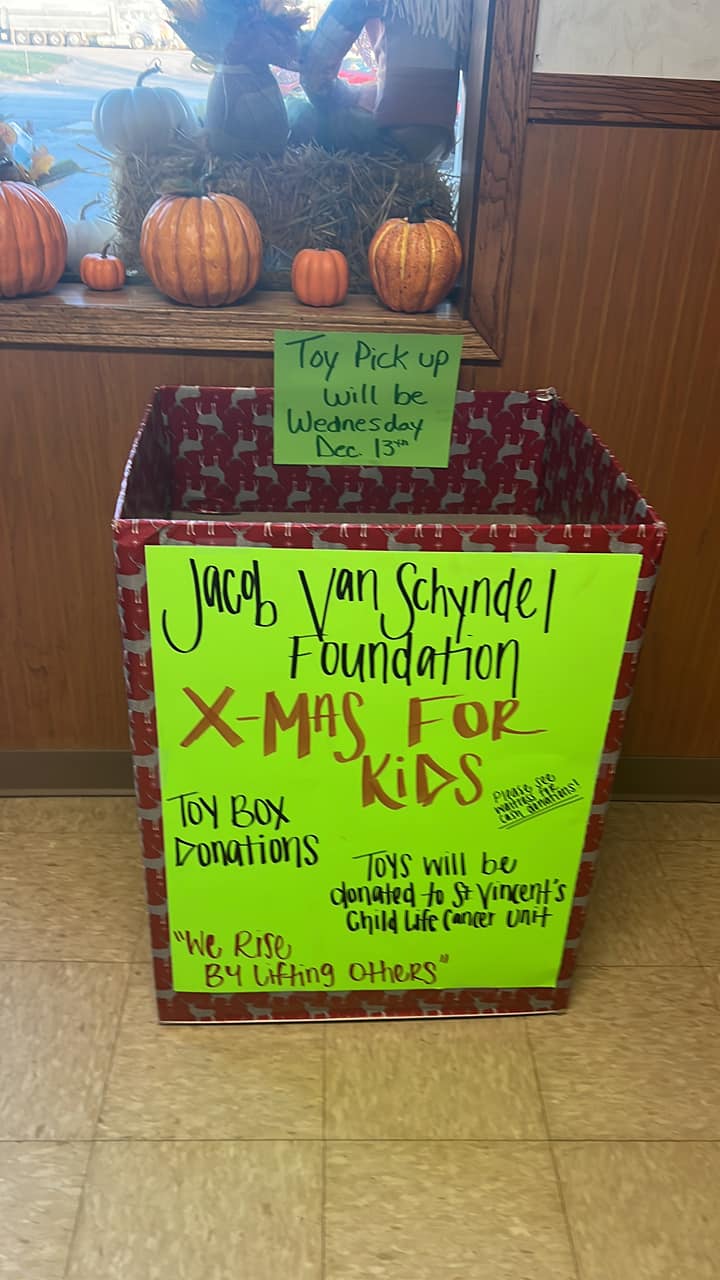 Toy Pick up
will be
Wednesday
Dec. 13th
Jacob Van Schyndel
Foundation
X-MAS FOR
KiDS
Please see
waitress for
cash donations!
Toy Box
Donations
Toys will be
donated to St Vincent's
Child Life Cancer Unit
"We Rise
By Lifting Others"